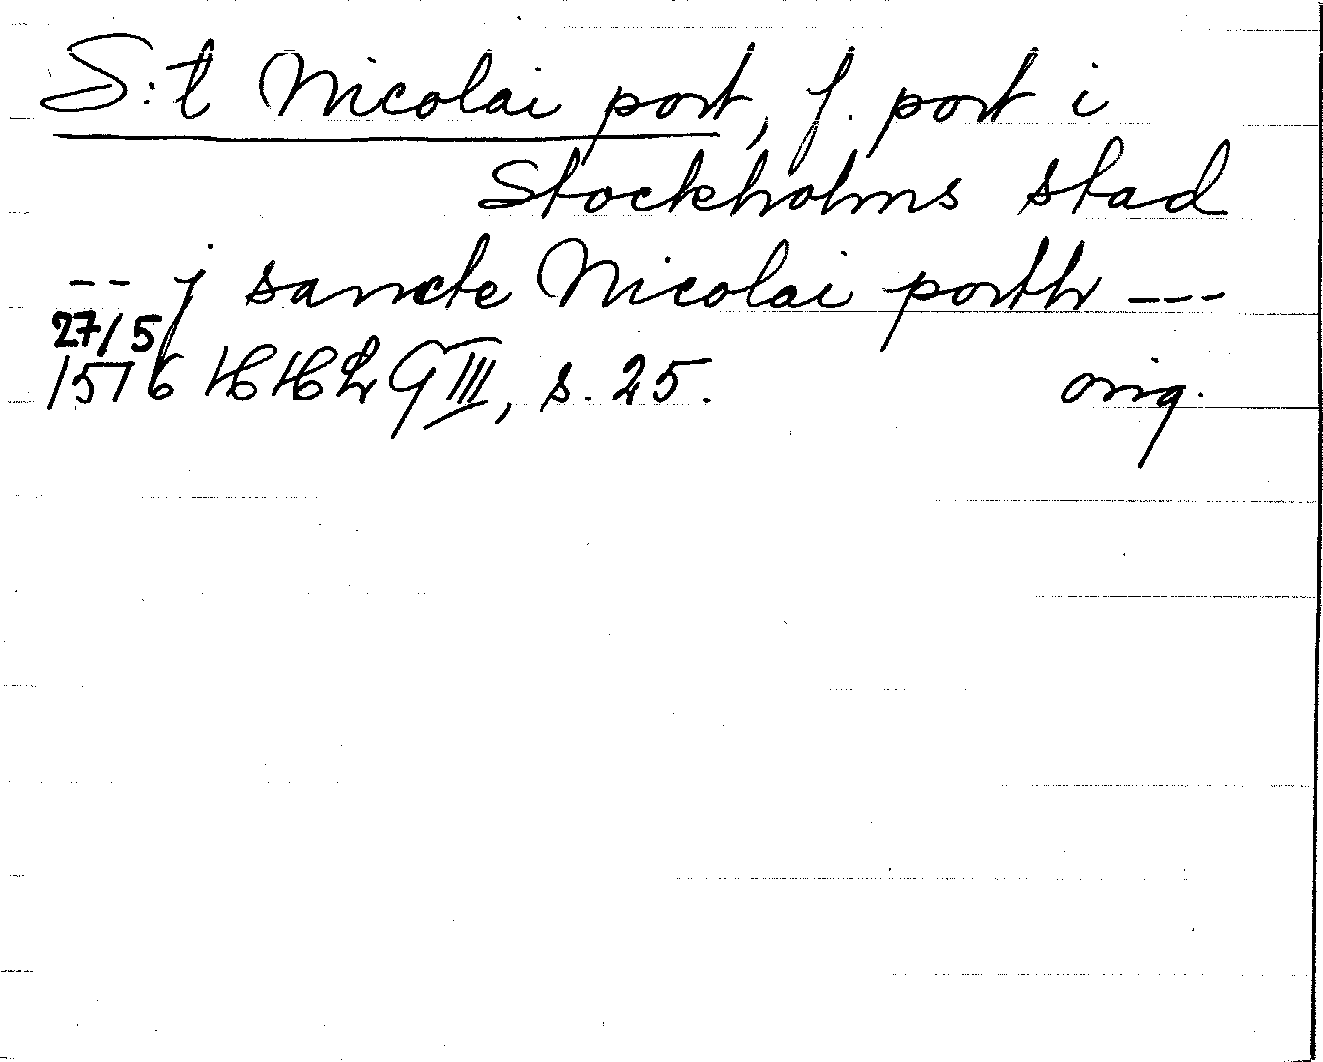 S:t Nicolai port, f. port i
Stockholms stad
-- j sancte Nicolai porth ---
27/5
1516 HHLG III, s. 25. orig.